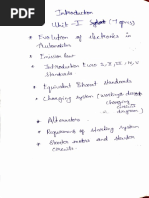 Introduction
Unit - I (7 topics)
* Evolution of electronics in
Automobiles
* Emission laws
* Introduction Euro I, II, III, IV, V
Standards
* Equivalent Bharat Standards
* Charging system (working & design
charging
diagram)
* Alternators
* Requirements of starting system
* Starter motors and starter
circuits.